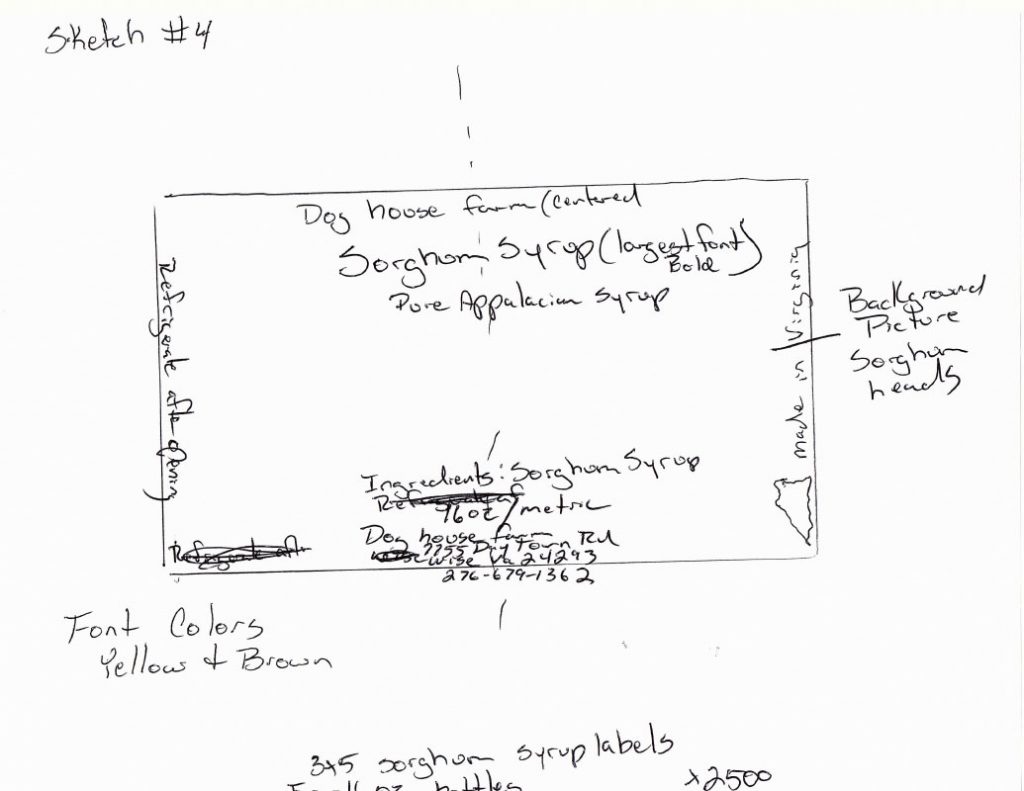 Sketch #4
Dog house farm (centered
Sorghum Syrup (largest font)
Bold
Pure Appalacian Syrup
Refrigerate after opening
made in Virginia
Background
Picture
Sorghum
heads
Ingredients: Sorghum Syrup
96oz/metric
Dog house farm
7755 Dry Town Rd
Wise Va 24293
276-679-1362
Font Colors
Yellow & Brown
3x5 sorghum syrup labels
x2500
oz bottles